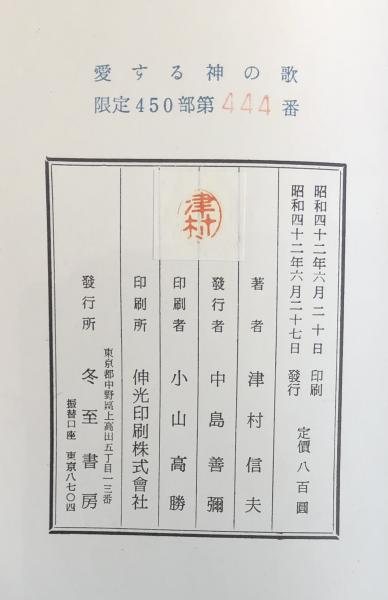 愛する神の歌
限定450部第444番
昭和四十二年六月二十日 印刷
昭和四十二年六月二十七日 發行
定價八百圓
著者 津村信夫
發行者 中島善彌
印刷者 小山高勝
印刷所 伸光印刷株式會社
東京都中野區上高田五丁目一三番
發行所 冬至書房
振替口座 東京八七〇四
津村